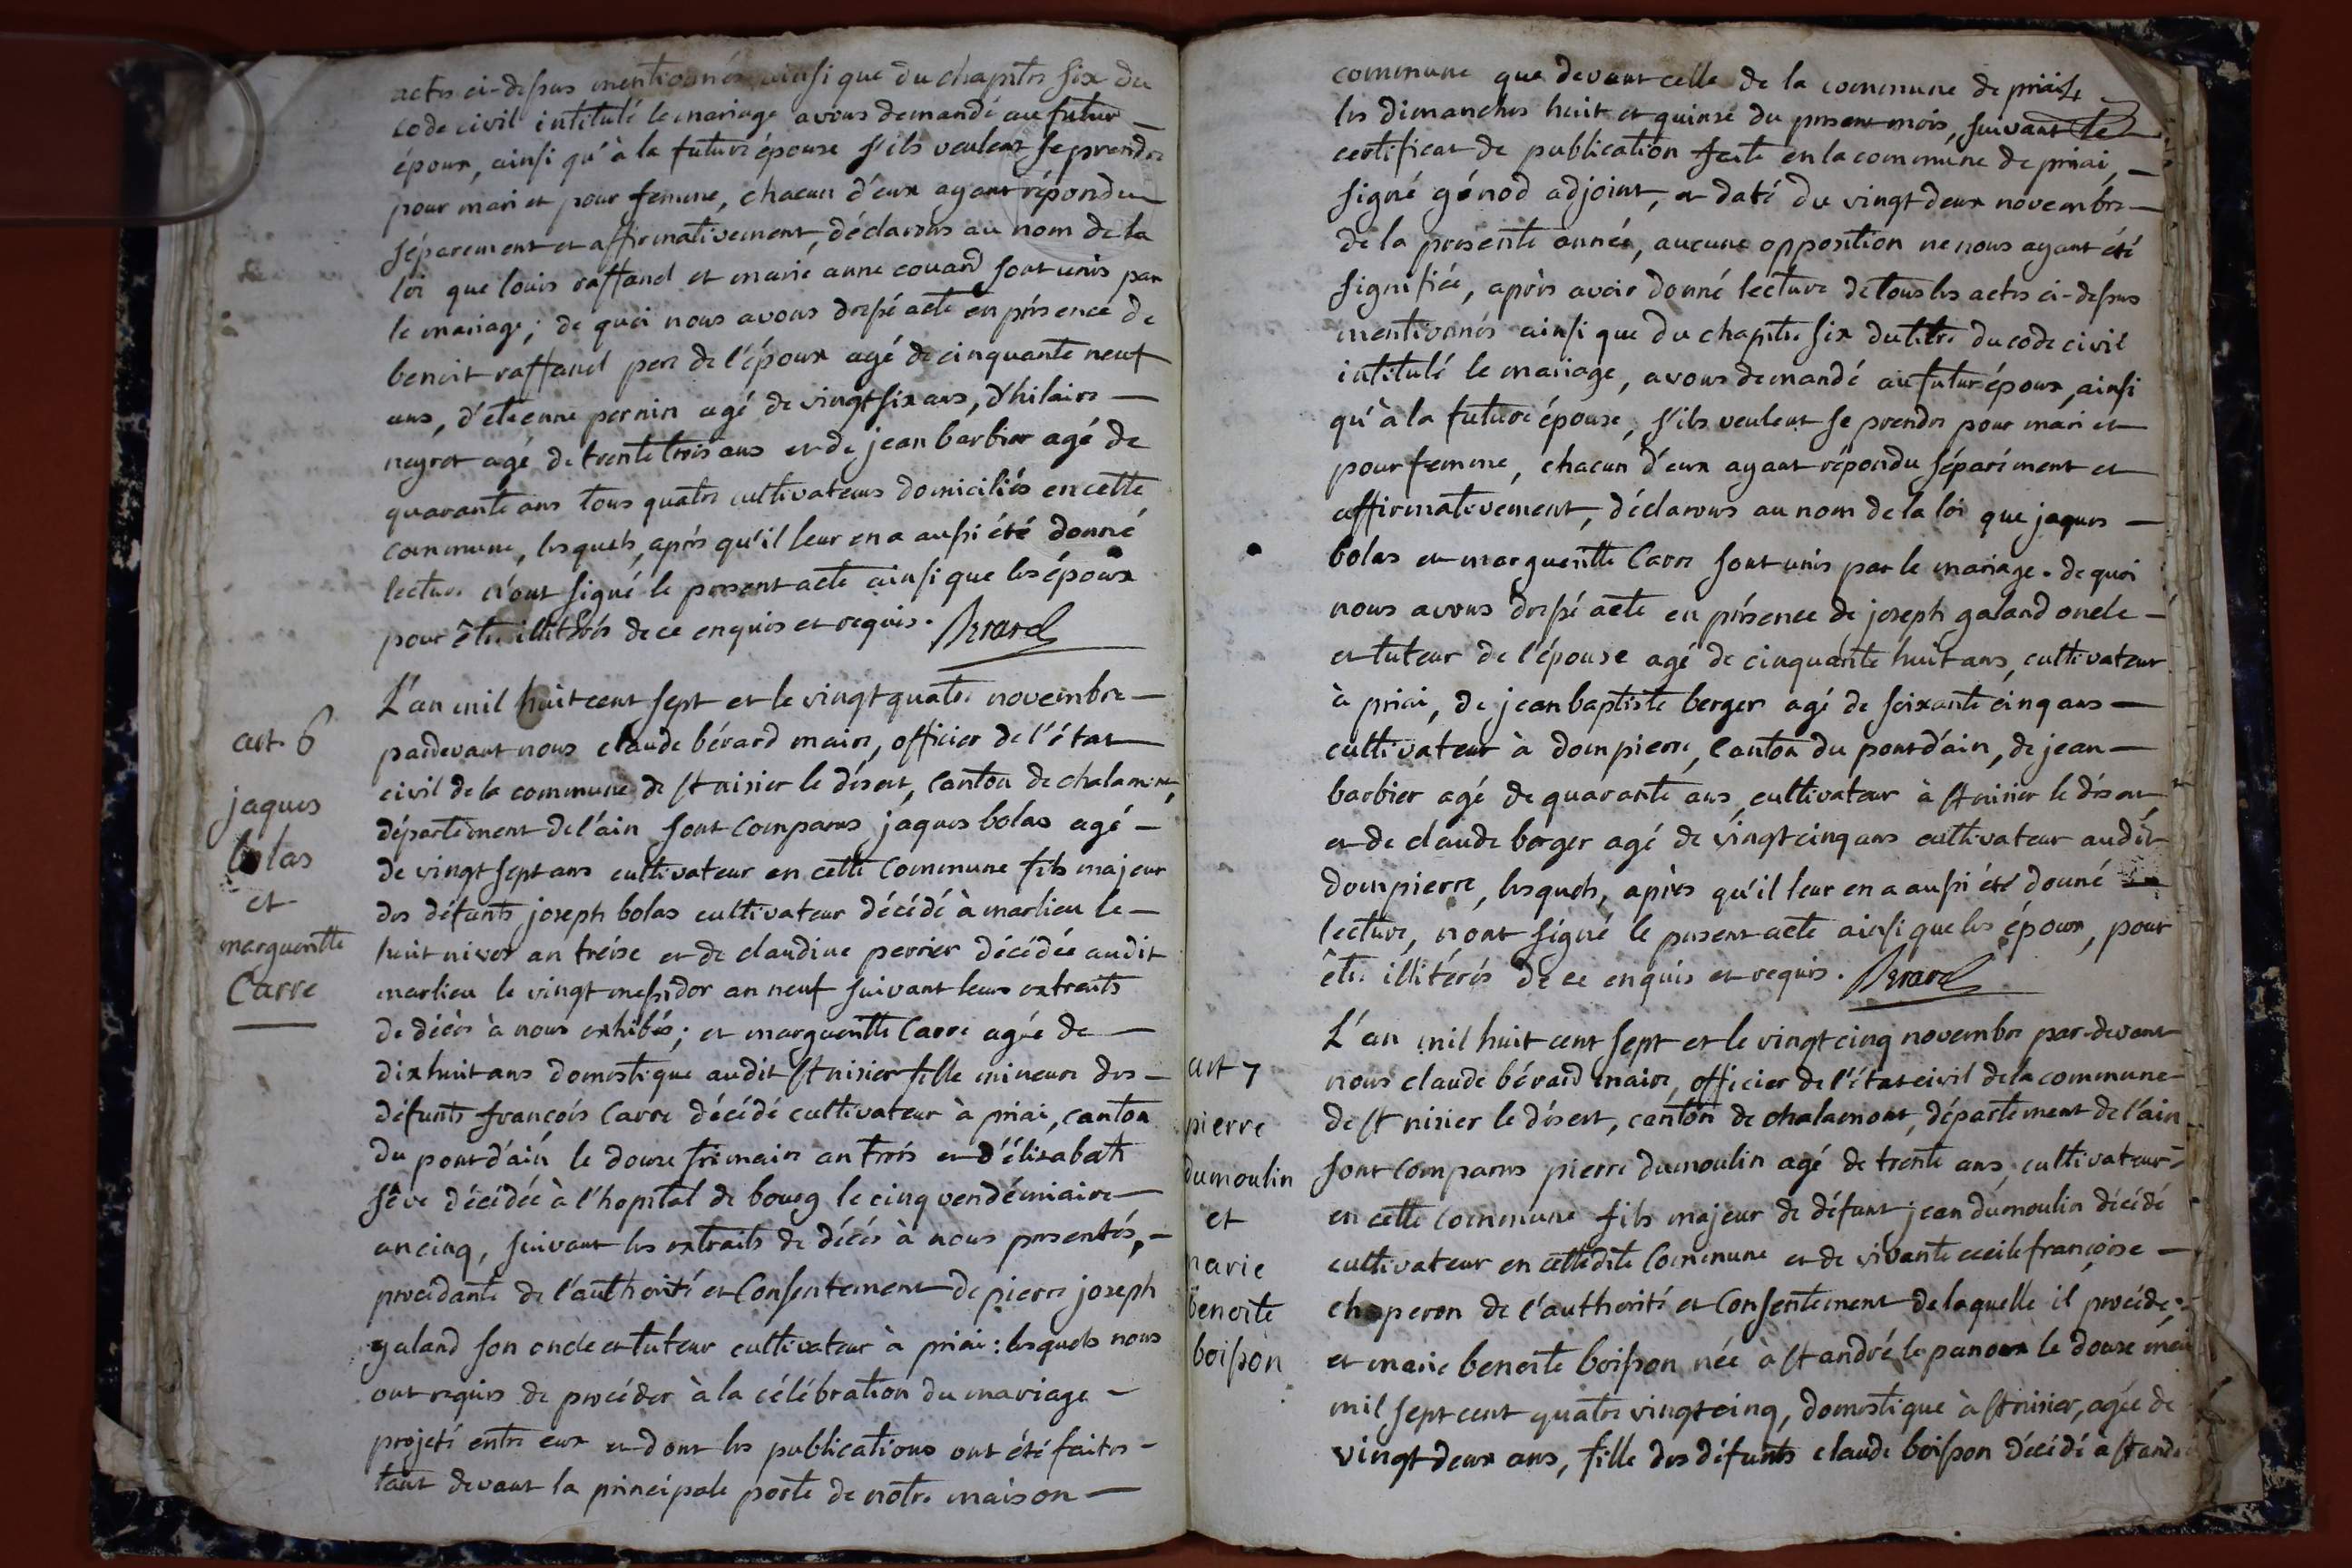 actes ci-dessus mentionnés ainsi que du chapitre six du
code civil intitulé le mariage avons demandé au futur
époux, ainsi qu'à la future épouse s'ils veulent se prendre
pour mari et pour femme, chacun d'eux ayant répondu
séparement et affirmativement, déclarons au nom de la
loi que louis raffand et marie anne couard sont unis par
le mariage; de quoi nous avons dressé acte en présence de
benoit raffand pere de l'époux agé de cinquante neuf
ans, d'etienne pernin agé de vingt six ans, d'hilaire
neyret agé de trente trois ans et de jean barbier agé de
quarante ans tous quatre cultivateurs domiciliés en cette
commune, lesquels, après qu'il leur en a aussi été donné
lecture n'ont signé le present acte ainsi que les époux
pour être illitérés de ce enquis et requis. Berard
art. 6
jaques
bolas
et
margueritte
Carre
L'an mil huit cent sept et le vingt quatre novembre
pardevant nous claude bérard maire, officier de l'état
civil de la commune de st nisier le désert, canton de chalamont,
département de l'ain sont comparus jaques bolas agé
de vingt sept ans cultivateur en cette commune fils majeur
des défunts joseph bolas cultivateur décédé à marlieu le
huit nivos an treise et de claudine perrier décédée audit
marlieu le vingt messidor an neuf suivant leurs extraits
de décès à nous exhibés; et margueritte Carre agée de
dix huit ans domestique audit st nisier fille mineure des
défunts françois Carre décédé cultivateur à priai, canton
du pont d'ain le douze frimaire an trois et d'élisabeth
séve décédée à l'hopital de bourg le cinq vendémiaire
an cinq, suivant les extraits de décès à nous presentés,
procédante de l'authorité et consentement de pierre joseph
galand son oncle et tuteur cultivateur à priai: lesquels nous
ont requis de procéder à la célébration du mariage
projeté entre eux et dont les publications ont été faites
tant devant la principale porte de notre maison
commune que devant celle de la commune de priai
les dimanches huit et quinze du present mois, suivant le
certificat de publication faite en la commune de priai,
signé génod adjoint, et daté du vingt deux novembre
de la presente année, aucune opposition ne nous ayant été
signifiée, après avoir donné lecture de tous les actes ci-dessus
mentionnés ainsi que du chapitre six du titre du code civil
intitulé le mariage, avons demandé au futur époux, ainsi
qu'à la future épouse, s'ils veulent se prendre pour mari et
pour femme, chacun d'eux ayant répondu séparément et
affirmativement, déclarons au nom de la loi que jaques
bolas et margueritte Carre sont unis par le mariage. de quoi
nous avons dressé acte en présence de joseph galand oncle
et tuteur de l'épouse agé de cinquante huit ans, cultivateur
à priai, de jean baptiste berger agé de soixante cinq ans
cultivateur à dompierre, canton du pont d'ain, de jean
barbier agé de quarante ans, cultivateur à st nisier le désert,
et de claude berger agé de vingt cinq ans cultivateur audit
dompierre, lesquels, après qu'il leur en a aussi été donné
lecture, n'ont signé le present acte ainsi que les époux, pour
être illitérés de ce enquis et requis. Berard
art 7
pierre
dumoulin
et
marie
benoite
boisson
L'an mil huit cent sept et le vingt cinq novembre par-devant
nous claude bérard maire, officier de l'état civil de la commune
de st nisier le désert, canton de chalamont, département de l'ain
sont comparus pierre dumoulin agé de trente ans, cultivateur
en cette commune fils majeur de défunt jean dumoulin décédé
cultivateur en cettedite commune et de vivante cecile françoise
chaperon de l'authorité et consentement de laquelle il procéde:
et marie benoite boisson née à st andré le panoux le douze mai
mil sept cent quatre vingt cinq, domestique à st nisier, agée de
vingt deux ans, fille des défunts claude boisson décédé à st andré